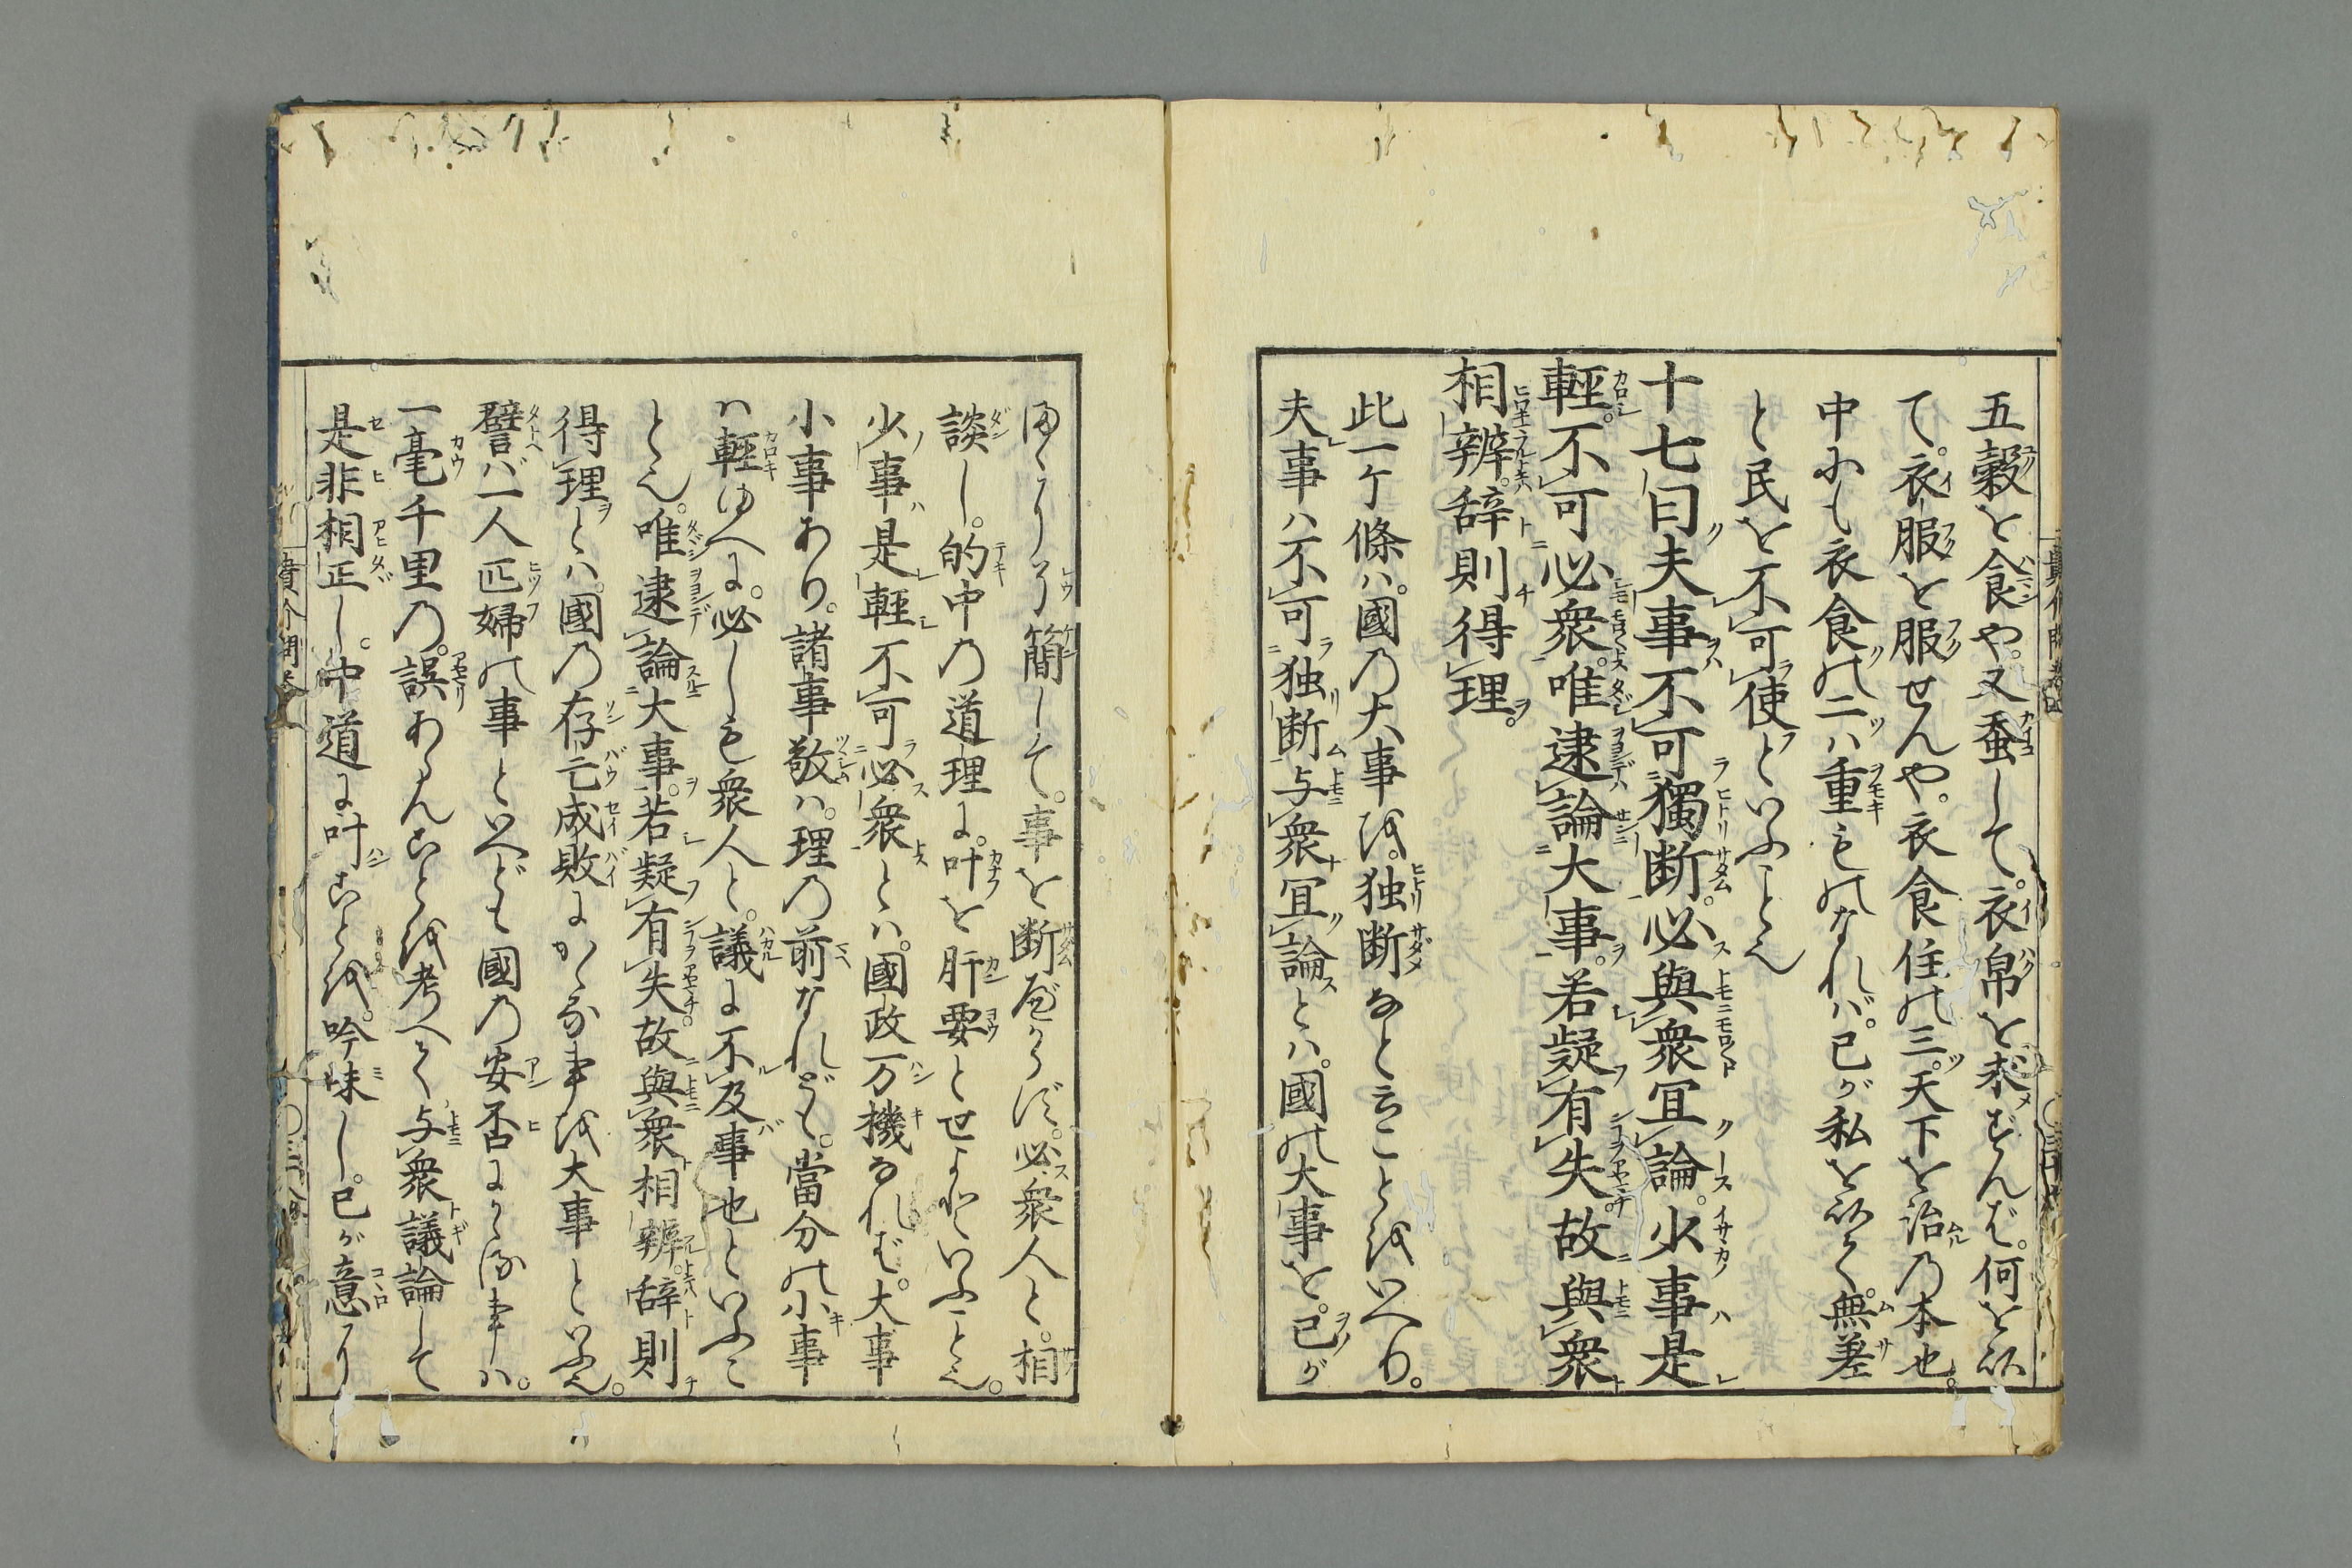 五穀を食や。又蚕して。衣帛を求ずんば。何を以
て。衣服を服せんや。衣食住の三。天下を治の本也。
中にも衣食の二ハ重ものなれバ。己が私を以て。無差
と民を不可使といふこと也
十七曰夫事不可獨断。必與衆冝論。少事是
輕。不可必衆。唯逮論大事。若疑有失。故與衆
相辨。辞則得理。
此一ケ條ハ。國乃大事を。独断なと云ことをいへり。
夫事ハ不可独断与衆冝論とハ。國の大事を。己が
簡して。事を断べからず。必衆人と。相
談し。的中の道理に。叶を肝要とせよといふこと也。
少事是輕不可必衆とハ。國政万機なれば。大事
小事あり。諸事敬ハ。理の前なれども。當分の小事
ハ輕ゆへに。必しも衆人と。議に不及事也といふこ
と也。唯逮論大事。若疑有失。故與衆相辨。辞則
得理とハ。國の存亡成敗にかゝる事を大事といふ也。
譬バ一人匹婦の事といへども國の安否にかゝる事ハ。
一毫千里の。誤あらんことを考へて、与衆議論して
是非相正し。中道に叶ことを。吟味し。己が意より